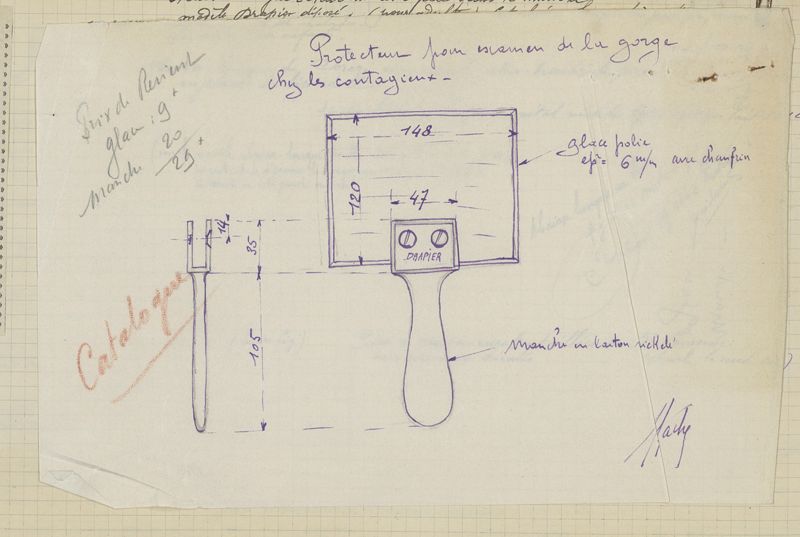 modèle Drapier déposé.
Protecteur pour examen de la gorge
chez les contagieux -
Prix de Revient
glace : 9
manche 20
29
148
120
47
glace polie
epr = 6 m/m avec chanfrein
14
35
DRAPIER
Catalogue
105
manche en laiton nickelé